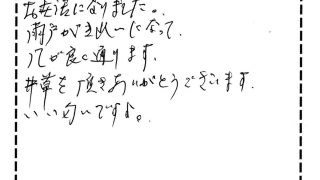 お世話になりました。
雨戸がきれいになって、
風が良く通ります。
草を頂きありがとうございます。
いい匂いですよ。